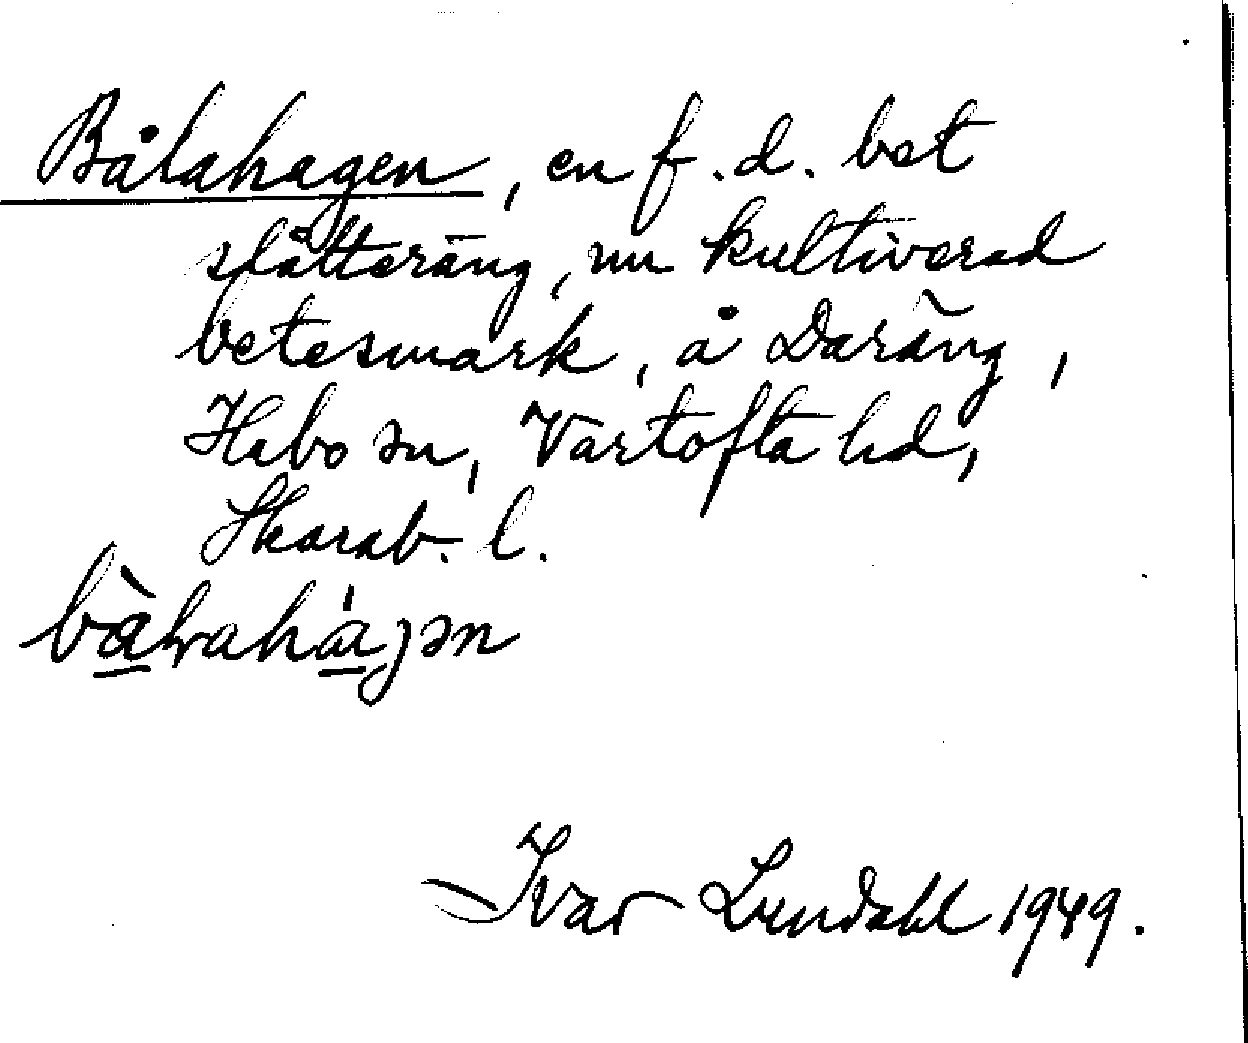 Bålahagen, en f.d. bet
slåtteräng, nu kultiverad
betesmark, å Daräng,
Habo sn, Vartofta hd,
Skarab. l.
Ivar Lundahl 1949.